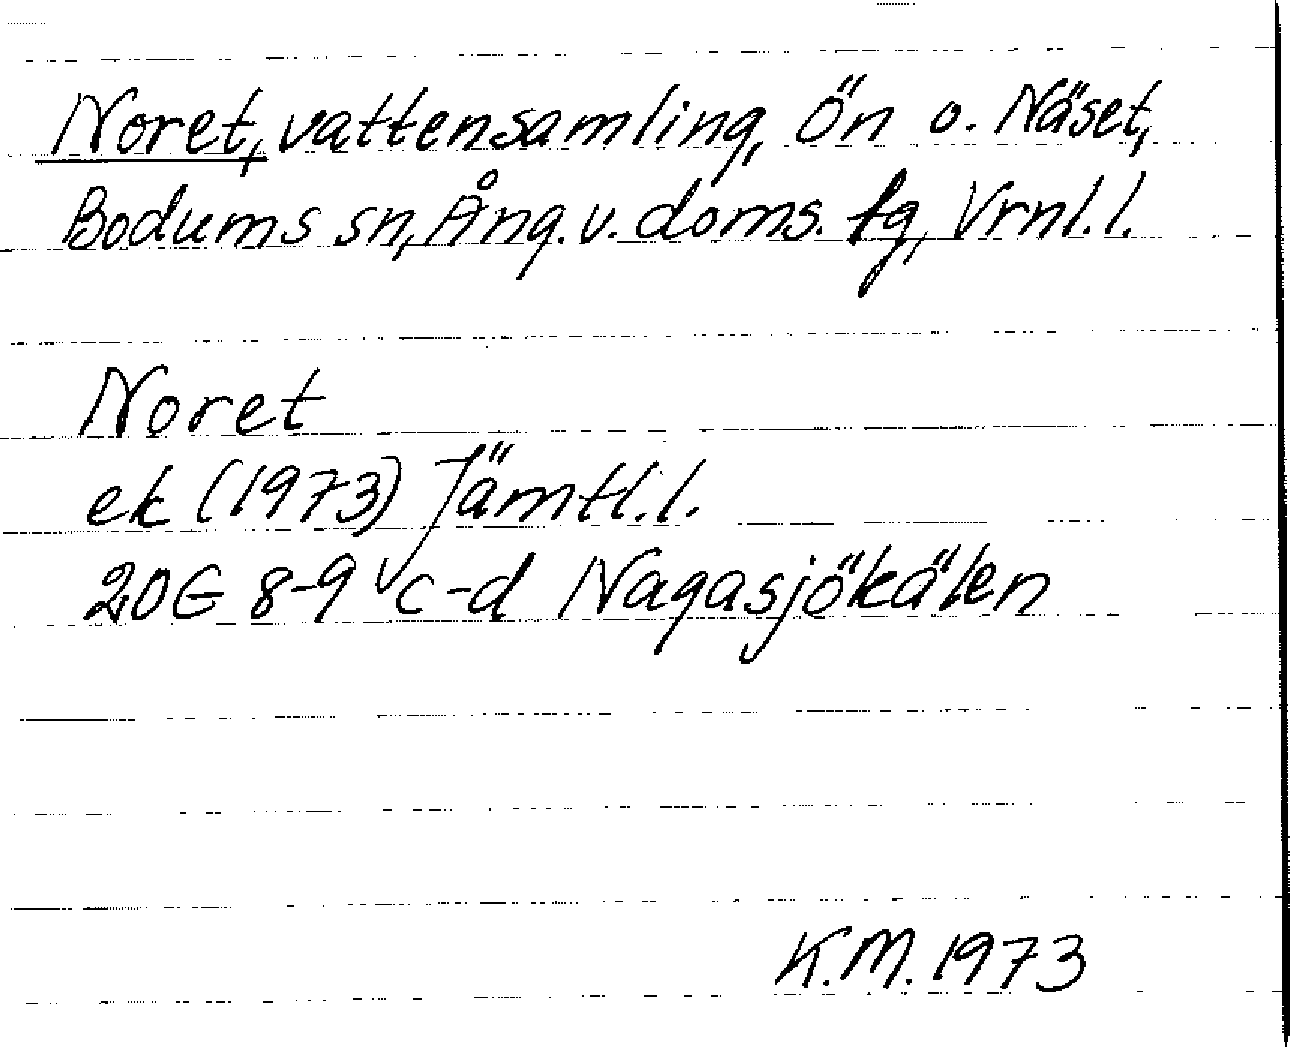 Noret, vattensamling, Ön o. Näset,
Bodums sn, Ång. v. doms. fg, Vrnl. l.
Noret
ek (1973) Jämtl. l.
20G 8-9 c-d Nagasjökälen
K.M. 1973